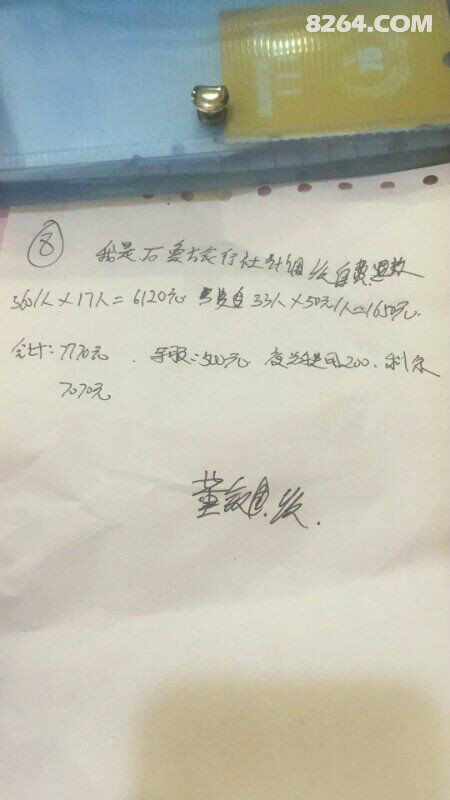 8264.COM
⑧ 我是石 旅行社计调 收自费退款
360/人×17人=6120元 33人×50元/人=1650元.
合计:7770元. 500元. 200. 剩余
7070元
董 收.